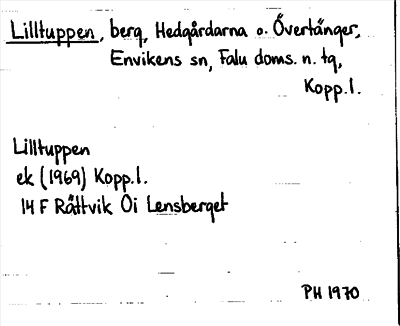 Lilltuppen, berg, Hedgårdarna o. Övertänger,
Envikens sn, Falu doms. n. tg,
Kopp.l.
Lilltuppen
ek (1969) Kopp.l.
14 F Rättvik 0i Lensberget
PH 1970